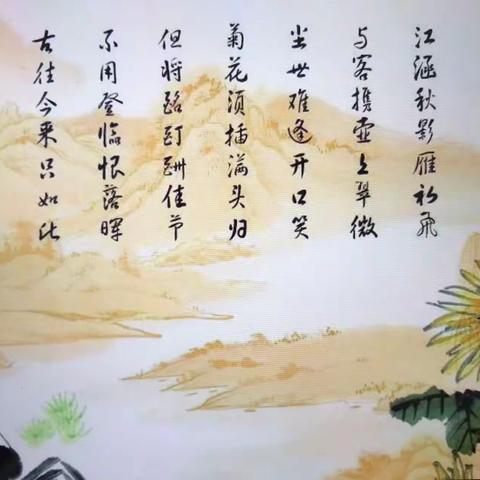 江涵秋影雁初飞
与客携壶上翠微
尘世难逢开口笑
菊花须插满头归
但将酩酊酬佳节
不用登临恨落晖
古往今来只如此